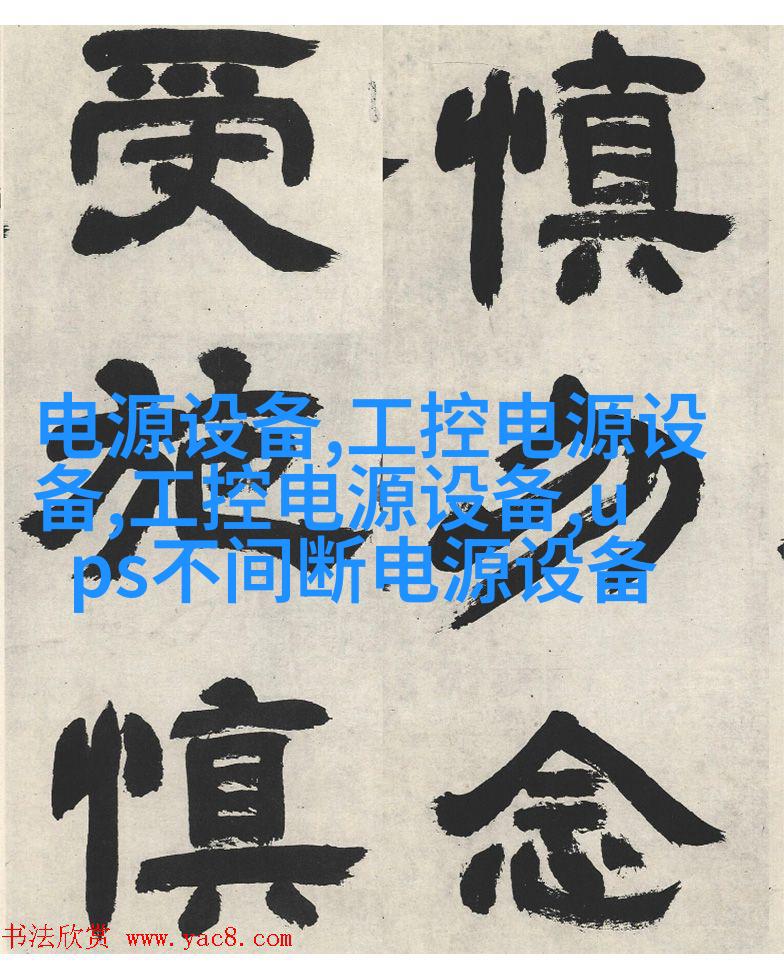 慎勿念
受施慎
电源设备,工控电源设
备,工控电源设备,u
ps不间断电源设备
书法欣赏 www.yac8.com